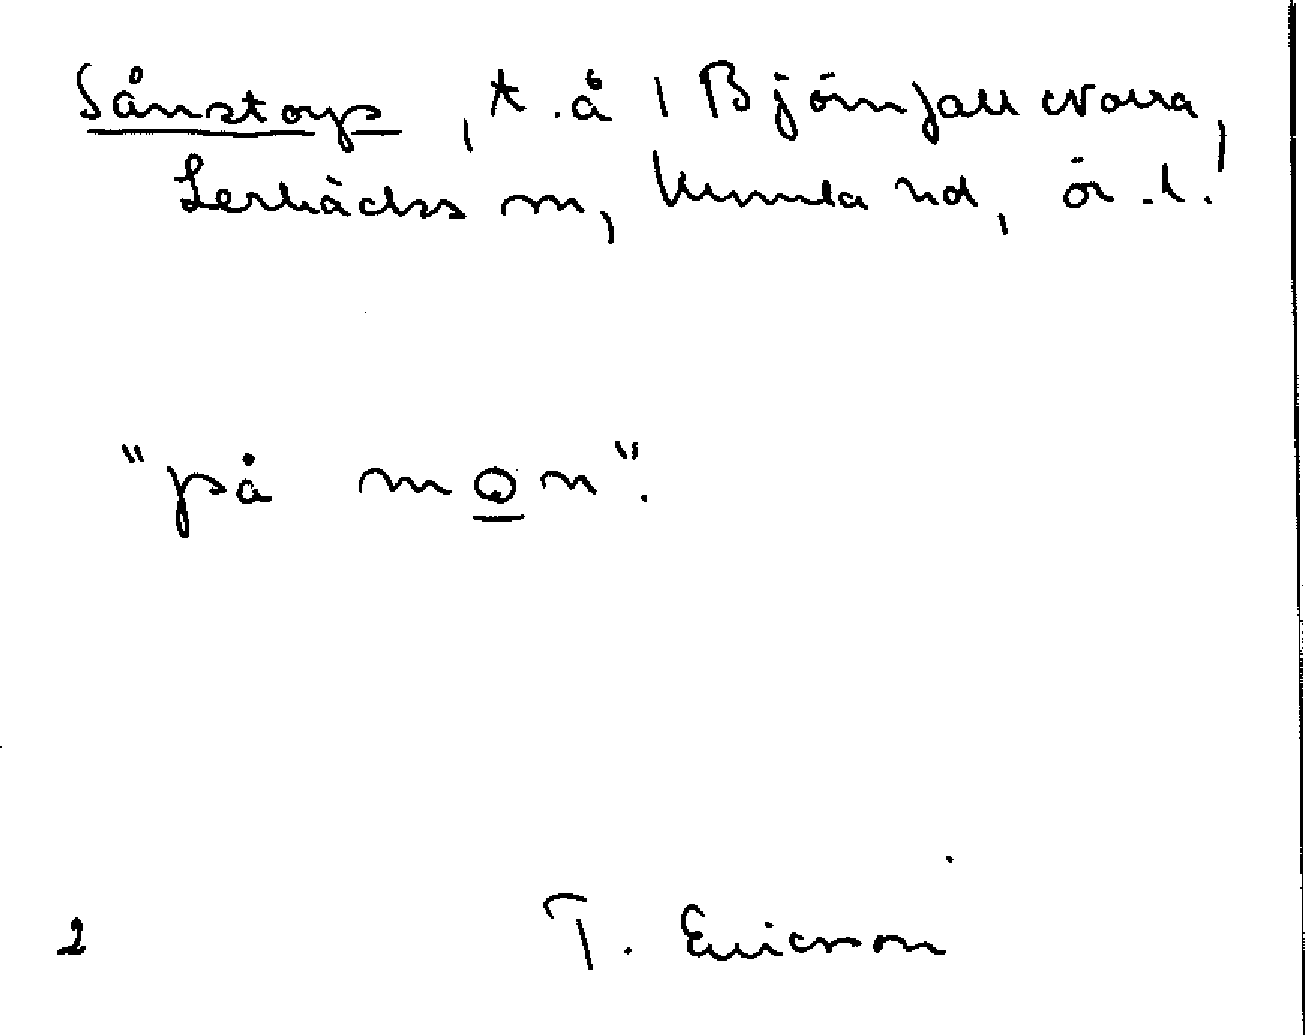 Sånstorp, t. å 1 Björnfall Norra,
Lerbäcks sn, Kumla hd, ör. l.
"på mon".
2 T. Ericsson